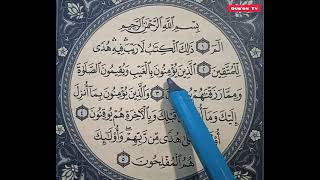 Qur'on Tv
بِسْمِ اللَّهِ الرَّحْمَٰنِ الرَّحِيمِ
الٓمٓ ١ ذَٰلِكَ الْكِتَٰبُ لَا رَيْبَ فِيهِ هُدًى
لِّلْمُتَّقِينَ ٢ الَّذِينَ يُؤْمِنُونَ بِالْغَيْبِ وَيُقِيمُونَ الصَّلَوٰةَ
وَمِمَّا رَزَقْنَٰهُمْ ٣ وَالَّذِينَ يُؤْمِنُونَ بِمَا أُنزِلَ
إِلَيْكَ وَمَا قَبْلِكَ وَبِالْءَاخِرَةِ هُمْ يُوقِنُونَ ٤
هُدًى مِّن رَّبِّهِمْ وَأُولَٰئِكَ
هُمُ الْمُفْلِحُونَ ٥